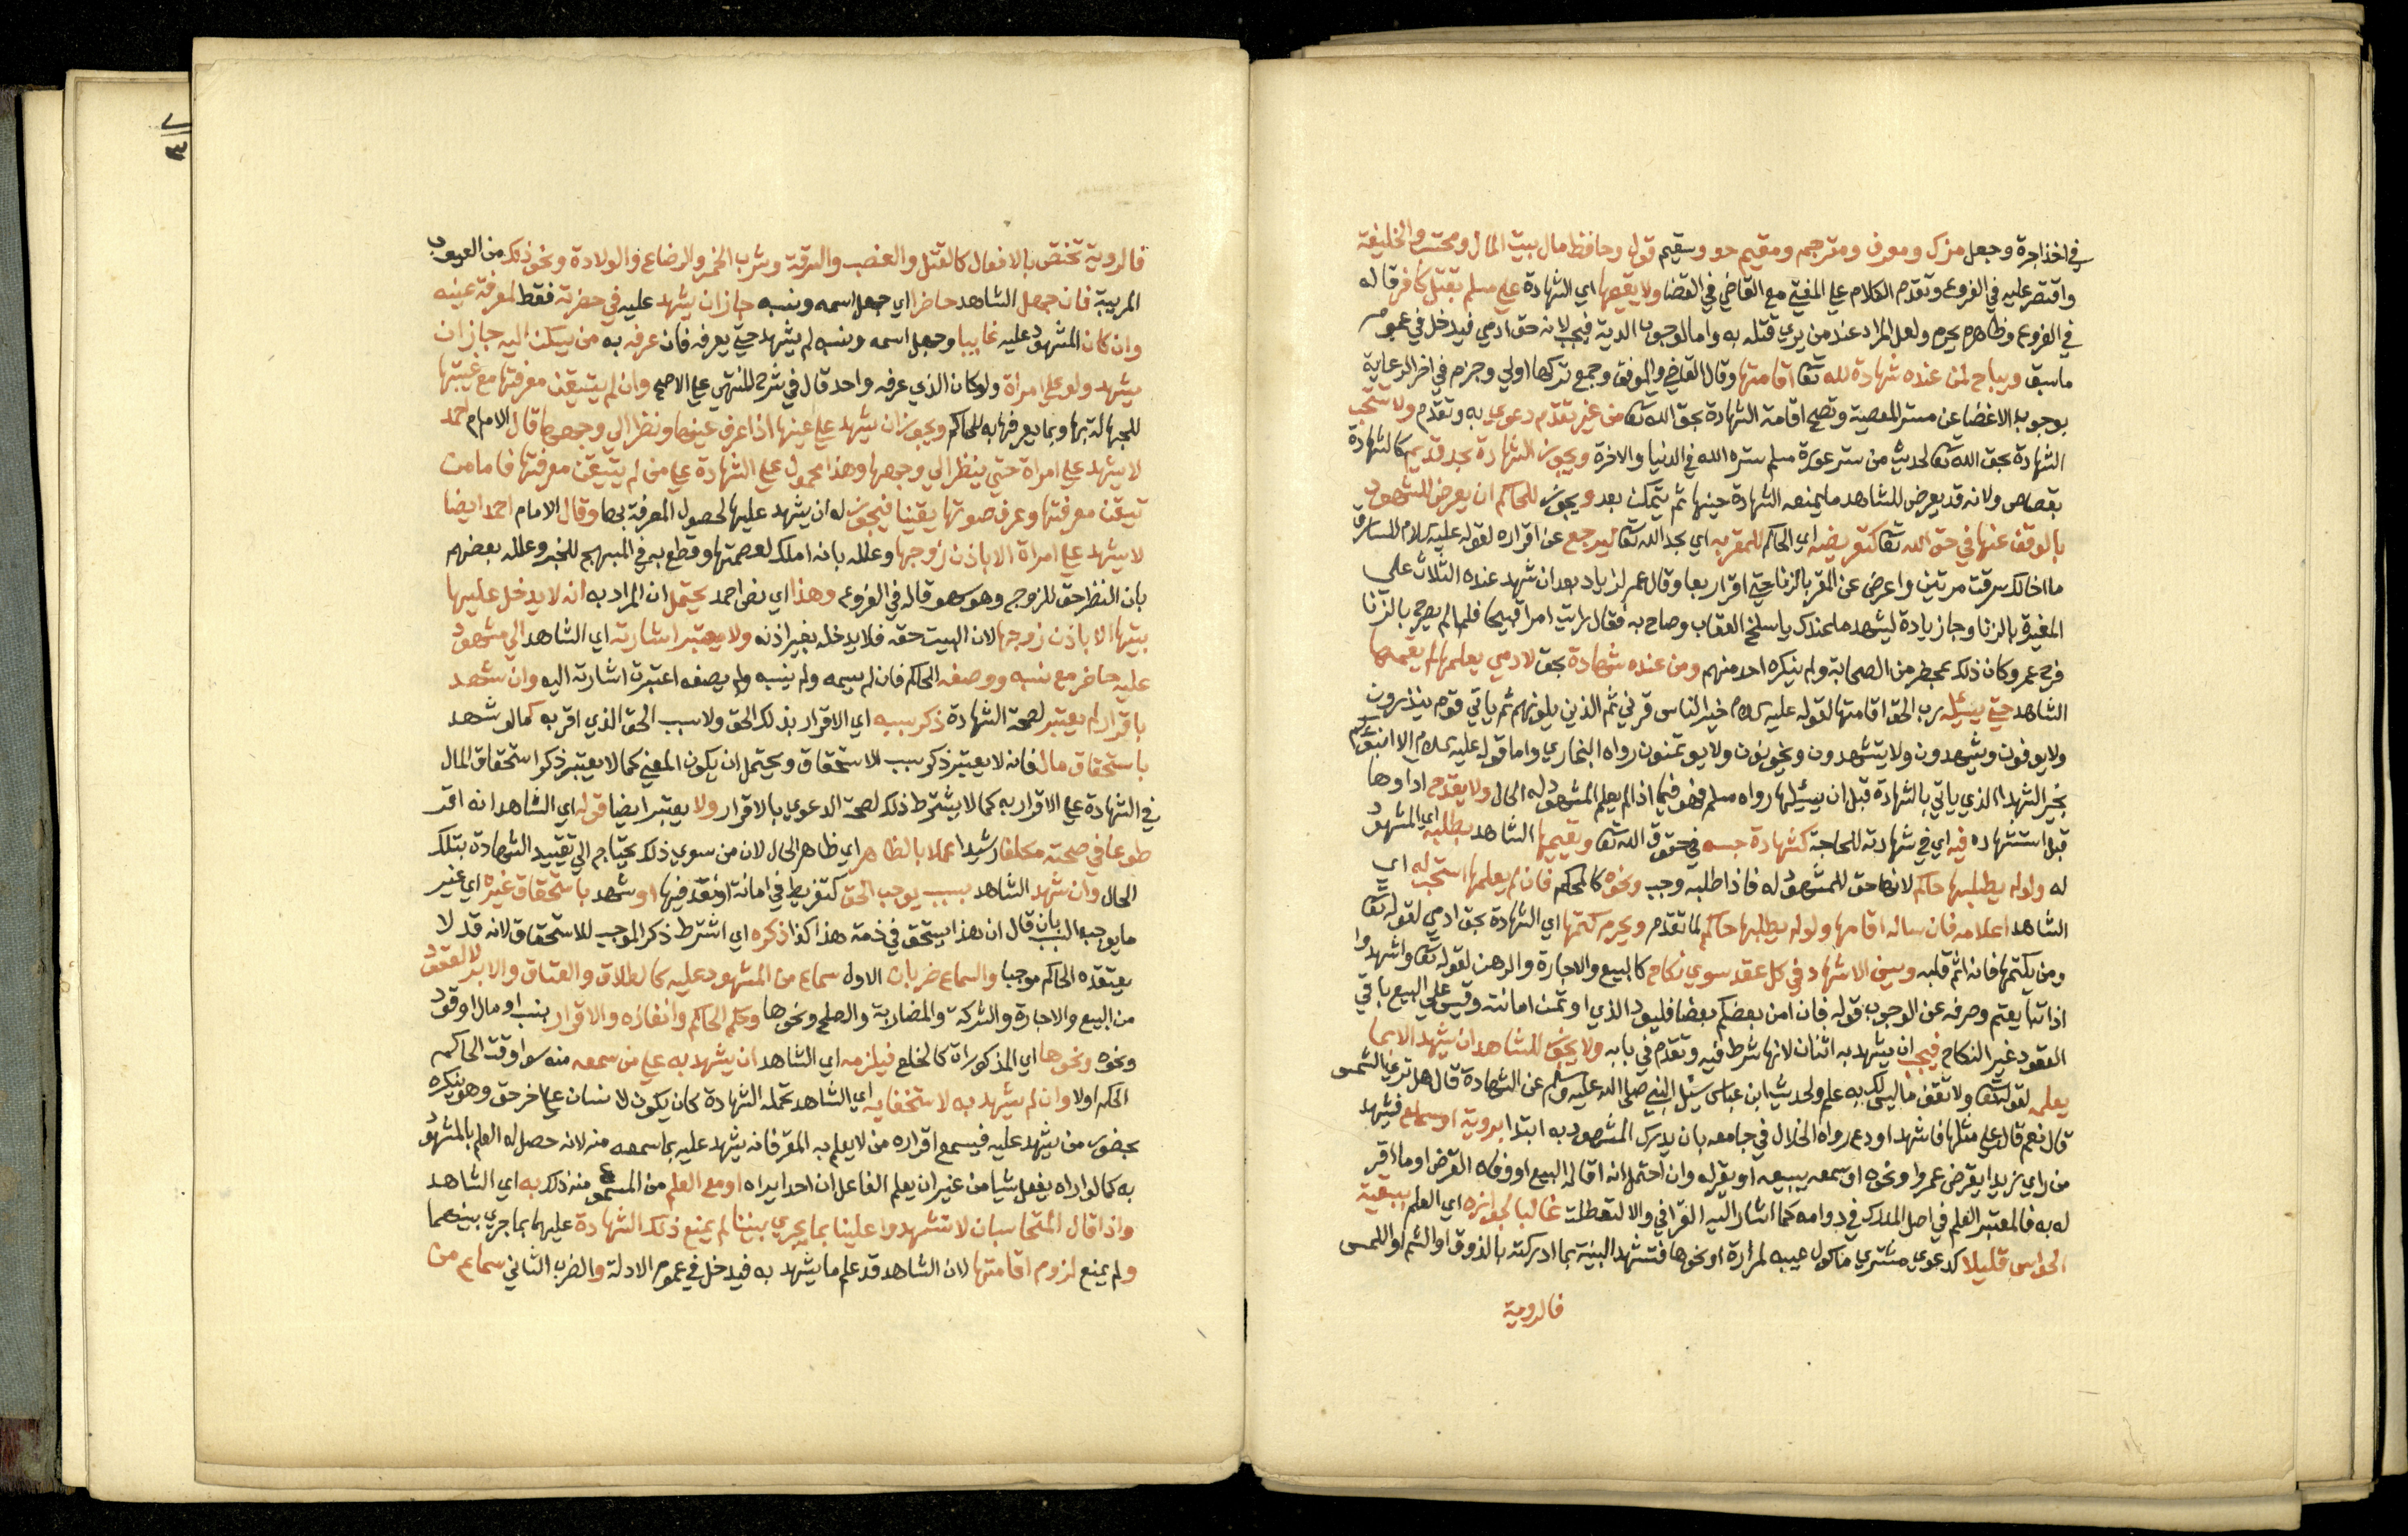 في اخذ اجرة وجعل مزك ومعرف ومترجم ومقيم حد وسقيم قول وحافظ مال بيت المال ومحتسب والخليفة
واقتصر عليه في الفروع وتقدم الكلام على المفتي مع القاضي في القضا ولا يقيمها اي الشهادة على مسلم بقتل كافر قاله
في الفروع وظاهره يحرم ولعل المراد عند من يري قتله به واما لوجوب الدية فيجب لانه حق ادمي فيدخل في عموم
ماسبق ويباح لمن عنده شهادة لله تعا اقامتها وقال القاضي والموفق وجمع تركها اولي وجزم في اخر الرعاية
بوجوب الاغضا عن ستر المعصية وتصح اقامة الشهادة بحق الله تعا من غير تقدم دعوي به وتقدم ولا تستحب
الشهادة بحق الله تعا لحديث من ستر عورة مسلم ستره الله في الدنيا والاخرة ويجوز الشهادة بحد قديم كالشهادة
بقصاص ولانه قد يعرض للشاهد مايمنعه الشهادة حينها ثم يتمكن بعد ويجوز للحاكم ان يعرض للشهود
بالوقف عنها في حق الله تعا كتعريضه اي الحاكم للمقر به اي بحد الله تعا ليرجع عن اقراره لقوله عليه السلام للسارق
ما اخالك سرقت مرتين واعرض عن المقر بالزنا حتي اقر اربعا وقال عمر لزياد بعد ان شهد عنده الثلاث علي
المغيرة بالزنا وجا زيادة ليشهد ماعندك ياسلخ العقاب وصاح به فقال رايت امرا قبيحا فلما لم يصرح بالزنا
فرح عمر وكان ذلك بمحضر من الصحابة ولم ينكره احد منهم ومن عنده شهادة بحق لادمي يعلمها لم يقمها
الشاهد حتي يسئله رب الحق اقامتها لقوله عليه السلام خير الناس قرني ثم الذين يلونهم ثم ياتي قوم ينذرون
ولا يوفون ويشهدون ولا يستشهدون ويخونون ولا يوتمنون رواه البخاري واما قوله عليه السلام الا انبئكم
بخير الشهدا الذي ياتي بالشهادة قبل ان يسئلها رواه مسلم فهو فيما اذا لم يعلم المشهود له الحال ولا يقدح اداوها
قبل استشهاده فيه اي في شهادته للحاجة كشهادة حسبة في حقوق الله تعا ويقيمها الشاهد بطلبه اي المشهود
له ولو لم يطلبها حاكم لانها حق للمشهود له فاذا طلبه وجب ونحوه كالحكم فان لم يعلمها استحب له اي
الشاهد اعلامه فان ساله اقامها ولو لم يطلبها حاكم لما تقدم ويحرم كتمها اي الشهادة بحق ادمي لقوله تعا
ومن يكتمها فانه اثم قلبه ويسن الاشهاد في كل عقد سوي نكاح كالبيع والاجارة والرهن لقوله تعا واشهدوا
اذا تبايعتم وصرفه عن الوجوب قوله فان امن بعضكم بعضا فليود الذي اوتمن امانته وقيس علي البيع باقي
العقود غير النكاح فيجب ان يشهد به اثنان لانها شرط فيه وتقدم في بابه ولا يجوز للشاهد ان يشهد الا بما
يعلمه لقوله تعا ولا تقف ماليس لك به علم ولحديث ابن عباس سئل النبي صلى الله عليه وسلم عن الشهادة قال هل تري الشمس
قال نعم قال علي مثلها فاشهد او دع رواه الخلال في جامعه بان يدرك المشهود به ابتدا بروية او سماع فيشهد
من راي زيدا يقرض عمرا ونحوه او سمعه يبيعه او يقر له وان احتمل انه اقاله البيع او وفاه القرض او ما اقر
له به فالمعتبر العلم في اصل المدرك في دوامه كما اشار اليه القرافي والا لتعطلت غالبا لجوازه اي العلم ببقية
الحواس قليلا كدعوي مشتري ماكول عيبه لمرارة او نحوها فتشهد البينة بما ادركته بالذوق او الشم او اللمس
فالروية
فالروية تختص بالافعال كالقتل والغصب والسرقة وشرب الخمر والرضاع والولادة ونحو ذلك من العيوب
المريية فان جهل الشاهد حاضرا اي جهل اسمه ونسبه جاز ان يشهد عليه في حضرته فقط لمعرفة عينه
وان كان المشهود عليه غايبا وجهل اسمه ونسبه لم يشهد حتي يعرفه فان عرفه به من يسكن اليه جاز ان
يشهد ولو علي امراة ولو كان الذي عرفه واحد قال في شرح المنتهي علي الاصح وان لم يتيقن معرفتها مع غيبتها
للجهالة بها وبما يعرفها به للحاكم ويجوز ان يشهد علي عينها اذا عرف عينها ونظر الي وجهها قال الامام احمد
لا يشهد علي امراة حتي ينظر الي وجهها وهذا محمول علي الشهادة علي من لم يتيقن معرفتها فاما من
تيقن معرفتها وعرف صوتها يقينا فيجوز له ان يشهد عليها لحصول المعرفة بها وقال الامام احمد ايضا
لا يشهد علي امراة الا باذن زوجها وعلله بانه املك لعصمتها وقطع به في المبهج للخبر وعلله بعضهم
بان النظر حق للزوج وهو سهو قاله في الفروع وهذا اي نص احمد يحتمل ان المراد به انه لا يدخل عليها
بيتها الا باذن زوجها لان البيت حقه فلا يدخله بغير اذنه ولا يعتبر اشارته اي الشاهد الي مشهود
عليه حاضر مع نسبه ووصفه الحاكم فان لم يسمه ولم ينسبه ولم يصفه اعتبرت اشارته اليه وان شهد
باقرار لم يعتبر لصحة الشهادة ذكر سببه اي الاقرار بذلك الحق ولا سبب الحق الذي اقر به كما لو شهد
باستحقاق مال فانه لا يعتبر ذكر سبب الاستحقاق ويحتمل ان يكون المعني كما لا يعتبر ذكر استحقاق المال
في الشهادة علي الاقرار به كما لا يشترط ذلك لصحة الدعوي بالاقرار ولا يعتبر ايضا قوله اي الشاهد انه اقر
طوعا في صحته مكلفا رشيدا عملا بالظاهر اي ظاهر الحال لان من سوي ذلك يحتاج الي تقييد الشهادة بتلك
الحال وان شهد الشاهد بسبب يوجب الحق كتفريط في امانة او تعد فيها او شهد باستحقاق غيره اي غير
مايوجبه السبب بان قال ان هذا يستحق في ذمة هذا كذا ذكره اي اشترط ذكر الموجب للاستحقاق لانه قد لا
يعتقده الحاكم موجبا والسماع ضربان الاول سماع من المشهود عليه كالطلاق والعتاق والابرا والعقود
من البيع والاجارة والشركة والمضاربة والصلح ونحوها وحكم الحاكم وانفاذه والاقرار بنسب او مال او قود
ونحوه ونحوها اي المذكورات كالخلع فيلزمه اي الشاهد ان يشهد به علي من سمعه منه سوا وقت الحاكم
الحكم اولا وان لم يشهد به لاستخفايه اي الشاهد تحمله الشهادة كان يكون لانسان علي اخر حق وهو ينكره
بحضور من يشهد عليه فيسمع اقراره من لا يعلم به المقر فانه يشهد عليه بما سمعه منه لانه حصل له العلم بالمشهود
به كما لو راه يفعل شيا من غير ان يعلم الفاعل ان احدا يراه او مع العلم من المسموع منه ذلك به اي الشاهد
واذا قال المتحاسبان لا تشهدوا علينا بما يجري بيننا لم يمنع ذلك الشهادة عليهما بما جري بينهما
ولم يمنع لزوم اقامتها لان الشاهد قد علم ما يشهد به فيدخل في عموم الادلة والضرب الثاني سماع من